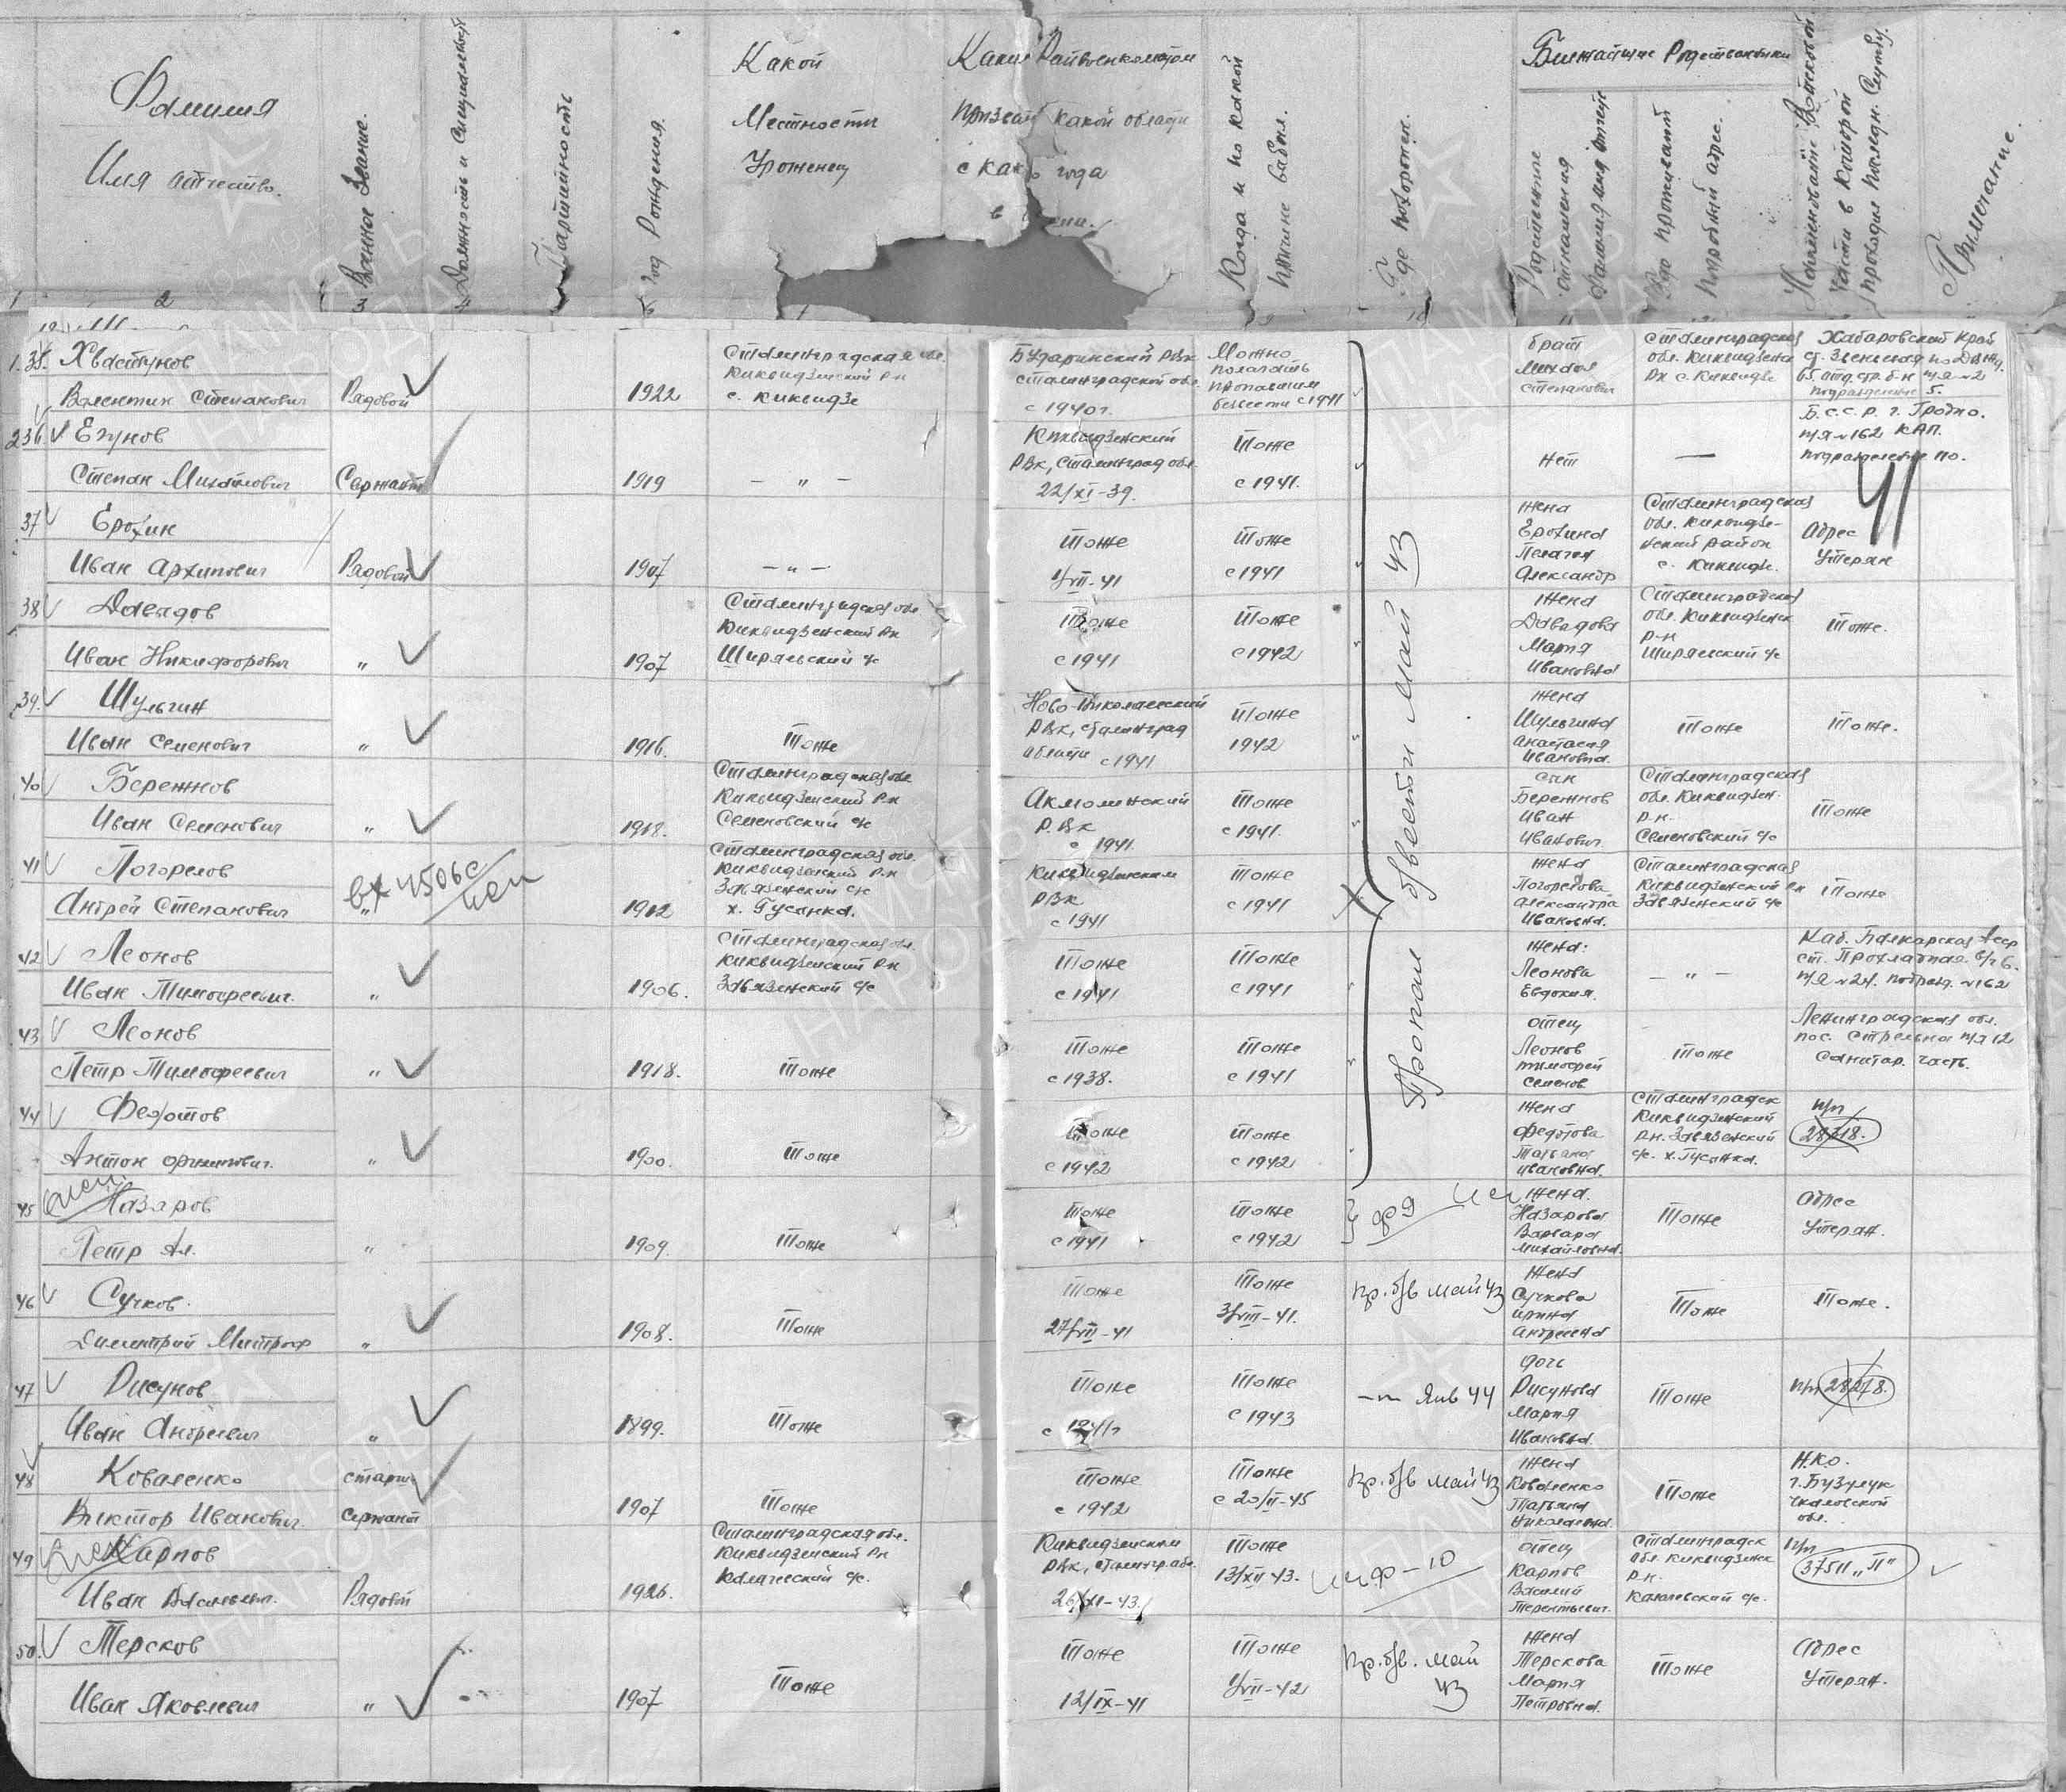 Фамилия
Имя отчество.
Военное Звание.
Должность и Специальность
Партийность
Год Рождения.
Какой
Местности
Уроженец
Каким Райвоенкоматом
призван какой области
с как года
Когда и по какой
причине выбыл.
Где похоронен.
Ближайшие Родственники
Родственные
отношения
Фамилия имя отчес
Где проживает
Подробный адрес.
Наименование Войсковой
части в которой
проходил последн. службу.
Примечание.
1 2 3
35. Хвастунов
Валентин Степанович
Рядовой
1922
Сталинградская обл.
Киквидзенский Р-н
с. Киквидзе
Бударинский РВК
Сталинградской обл.
с 1940г.
Можно
полагать
пропавшим
безвести с 1941
брат
Михаил
Степанович
Сталинградская
обл. Киквидзен
Рн с. Киквидзе
Хабаровский Край
п/я №2
подразделение 5.
36 Егунов
Степан Михайлович
Сержант
1919
— " —
Киквидзенский
РВК, Сталинград обл.
22/XI-39.
Тоже
с 1941.
нет
—
Б.С.С.Р. г. Гродно.
п/я №162 КАП.
подразделение по.
41
37 Ерохин
Иван Архипович
Рядовой
1907
— " —
Тоже
1/VII-41
Тоже
с 1941
Жена
Ерохина
Пелагея
Александр
Сталинградская
обл. Киквидзе-
нский район
с. Киквидзе.
Адрес
Утерян
38 Давадов
Иван Никифорович
"
1907
Сталинградская обл
Киквидзенский Рн
Ширяевский с/с
Тоже
с 1941
Тоже
с 1942
Жена
Давадова
Мария
Ивановна
Сталинградская
обл. Киквидзенск
р-н
Ширяевский с/с
Тоже.
39. Шульгин
Иван Семенович
"
1916.
Тоже
Ново-Николаевский
РВК, Сталинград
области с 1941
Тоже
1942
Жена
Шульгина
Анастасия
Ивановна.
Тоже
Тоже.
40 Бережнов
Иван Семенович
"
1918.
Сталинградская обл
Киквидзенский Рн
Семеновский с/с
Акмолинский
Р.ВК
с 1941.
Тоже
с 1941.
сын
Бережнов
Иван
Иванович
Сталинградская
обл. Киквидзен.
р-н.
Семеновский с/с
Тоже
41 Погорелов
Андрей Степанович
вх 4506с
1912
Сталинградская обл.
Киквидзенский Р-н
Завязенский с/с
х. Гусанка.
Киквидзенским
РВК
с 1941
Тоже
с 1941
Жена
Погорелова
Александра
Ивановна.
Сталинградская
Киквидзенский Рн
Завязенский с/с
Тоже
Пропал б/вести май 43
42 Леонов
Иван Тимофеевич.
"
1906.
Сталинградская обл.
Киквидзенский Рн
Завязенский с/с
Тоже
с 1941
Тоже
с 1941
Жена.
Леонова
Евдокия.
— " —
Каб. Балкарская Асср
ст. Прохладная.
п/я №24. подразд. №162
43 Леонов
Петр Тимофеевич
"
1918.
Тоже
Тоже
с 1938.
Тоже
с 1941
отец
Леонов
Тимофей
Семенов
Тоже
Ленинградская обл.
пос. Стрельна п/я 12
Санитар. часть.
44 Федотов
Антон
"
1900.
Тоже
Тоже
с 1942
Тоже
с 1942
Жена
Федотова
Татьяна
Ивановна.
Сталинградск
Киквидзенский
рн. Завязенский
с/с. х. Гусанка.
п/п
28318.
45 Назаров
Петр Ал.
"
1909.
Тоже
Тоже
с 1941
Тоже
с 1942
Жена.
Назарова
Варвара
Михайловна.
Тоже
Адрес
Утерян.
46 Сучков.
Димитрий Митроф
"
1908.
Тоже
Тоже
27/VII-41
Тоже
3/VIII-41.
пр. б/в май 43
Жена
Сучкова
Ирина
Андреевна
Тоже
Тоже.
47 Рисунов
Иван Андреевич
"
1899.
Тоже
Тоже
с 1941г
Тоже
с 1943
—"— Янв 44
дочь
Рисунова
Мария
Ивановна.
Тоже
п/п 28278.
48 Коваленко
Виктор Иванович.
старш
сержант
1907
Тоже
Тоже
с 1942
Тоже
с 20/II-45
пр. б/в май 43
Жена
Коваленко
Татьяна
Николаевна.
Тоже
Н.КО.
г. Бузулук
Чкаловской
обл.
49 Карпов
Иван Васильевич.
Рядовой
1926.
Сталинградская обл.
Киквидзенский Рн
Калачевский с/с.
Киквидзенским
РВК, Сталингр. обл.
26/XI-43.
Тоже
13/XII-43.
ф-10
отец
Карпов
Василий
Терентьевич.
Сталинградск
обл. Киквидзенск
р-н.
Калачевский с/с.
п/п
37511 „П"
50. Терсков
Иван Яковлевич
"
1907
Тоже
Тоже
12/IX-41
Тоже
VII-42
пр. б/в. май
43
Жена
Терскова
Мария
Петровна.
Тоже
Адрес
Утерян.